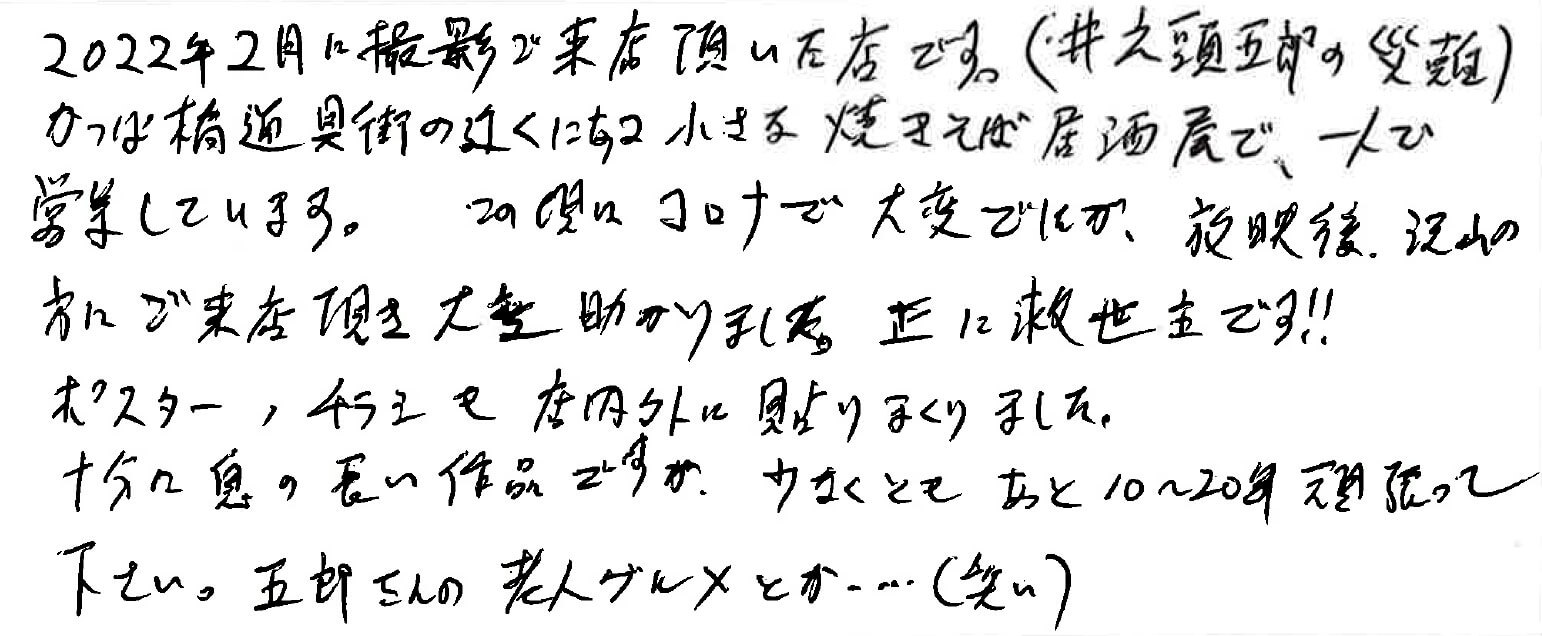 2022年2月に撮影で来店頂いた店です。(井之頭五郎の災難)
かっぱ橋道具街の近くにある小さな焼きそば居酒屋で、一人で
営業しています。 この頃はコロナで大変でしたが、放映後、沢山の
方にご来店頂き大変助かりました。正に救世主です!!
ポスター,チラシも店内外に貼りまくりました。
十分に息の長い作品ですが、少なくともあと10~20年頑張って
下さい。五郎さんの老人グルメとか……(笑い)